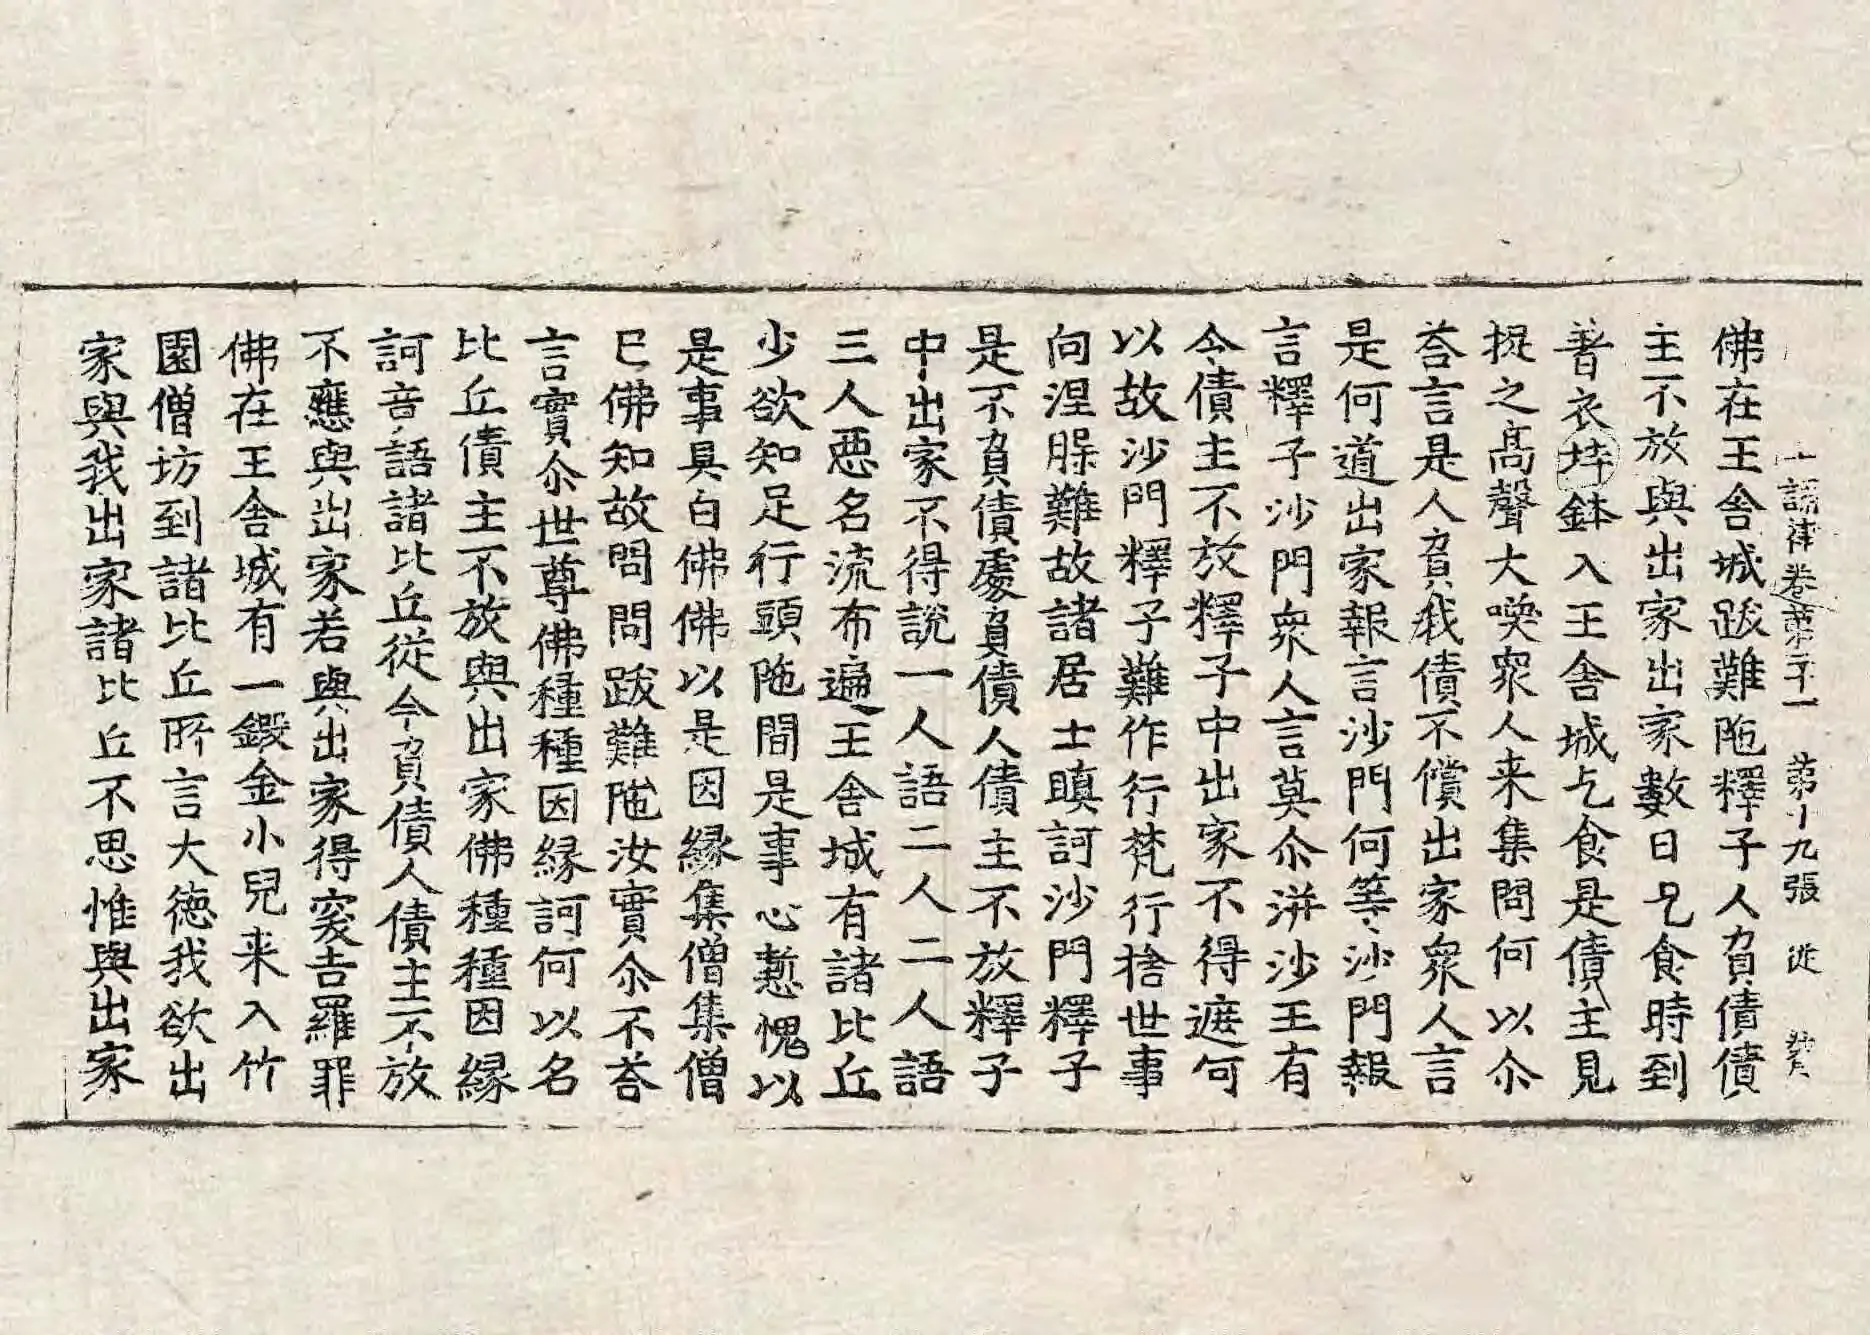 十誦律卷第二十一 第十九張 從
佛在王舍城跋難陁釋子人負債債
主不放與出家出家數日乞食時到
著衣持鉢入王舍城乞食是債主見
捉之高聲大喚衆人来集問何以尒
荅言是人負我債不償出家衆人言
是何道出家報言沙門何等沙門報
言釋子沙門衆人言莫尒洴沙王有
令債主不放釋子中出家不得遮何
以故沙門釋子難作行梵行捨世事
向涅槃難故諸居士瞋訶沙門釋子
是不負債處負債人債主不放釋子
中出家不得說一人語二人二人語
三人惡名流布遍王舍城有諸比丘
少欲知足行頭陁聞是事心慙愧以
是事具白佛佛以是因緣集僧集僧
已佛知故問問跋難陁汝實尒不荅
言實尒世尊佛種種因緣訶何以名
比丘債主不放與出家佛種種因緣
訶音語諸比丘從今負債人債主不放
不應與出家若與出家得突吉羅罪
佛在王舍城有一鍛金小兒来入竹
園僧坊到諸比丘所言大德我欲出
家與我出家諸比丘不思惟與出家